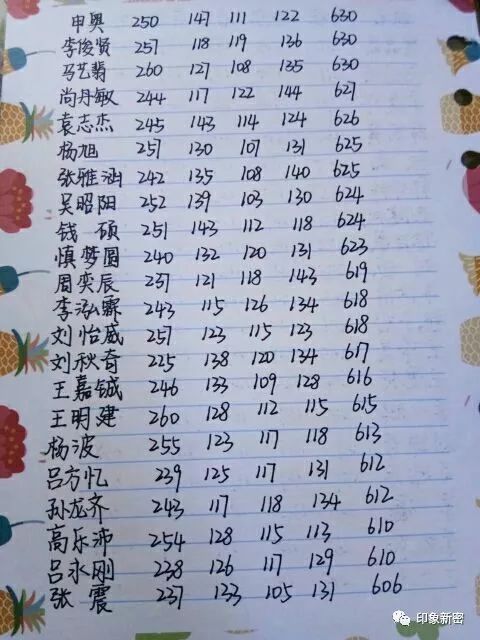 申奥 250 147 111 122 630
李俊贤 257 118 119 136 630
马艺翡 260 127 108 135 630
尚丹敏 244 117 122 144 627
袁志杰 245 143 114 124 626
杨旭 257 130 107 131 625
张雅涵 242 135 108 140 625
吴昭阳 252 139 103 130 624
钱硕 251 143 112 118 624
慎梦圆 240 132 120 131 623
周奕辰 237 121 118 143 619
李泓霖 243 115 126 134 618
刘怡威 257 123 115 123 618
刘秋奇 225 138 120 134 617
王嘉铖 246 133 109 128 616
王明建 260 128 112 115 615
杨波 255 123 117 118 613
吕方忆 239 125 117 131 612
孙龙齐 243 117 118 134 612
高乐沛 254 128 115 113 610
吕永刚 238 126 117 129 610
张震 237 133 105 131 606
印象新密